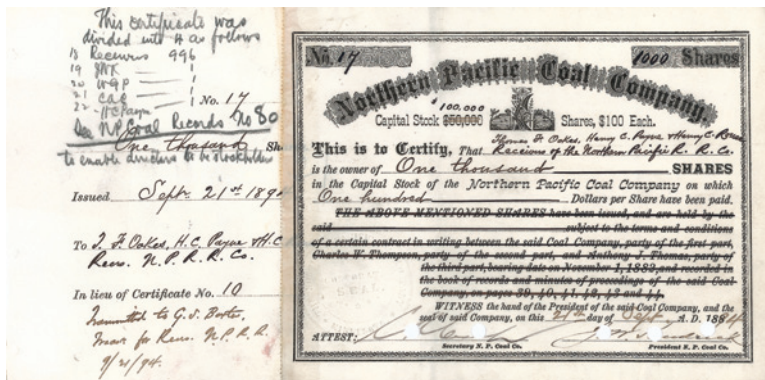 This certificate was
divided into 4 as follows
18 Receivers 996
19 JNK — 1
20 WGP — 1
21 CAC 1
22 HC Payne 1
No. 17
See N.P. Coal Records No 80
One thousand Sh
to enable directors to be stockholders
Issued Sept. 21st 1894
To T. F. Oakes, H.C. Payne & H.C.
Recrs. N. P. R. R. Co.
In lieu of Certificate No. 10
Transmitted to G. S.
for Recrs. N. P. R. R.
9/21/94.
No. 17
1000 Shares
Northern Pacific Coal Company.
$100,000
Capital Stock $50,000 Shares, $100 Each.
Thomas F. Oakes, Henry C. Payne & Henry C. Rouse
This is to Certify, That Receivers of the Northern Pacific R. R. Co.
is the owner of One thousand SHARES
in the Capital Stock of the Northern Pacific Coal Company on which
One hundred Dollars per Share have been paid.
THE ABOVE MENTIONED SHARES have been issued, and are held by the
said subject to the terms and conditions
of a certain contract in writing between the said Coal Company, party of the first part,
Charles W. Thompson, party of the second part, and Anthony J. Thomas, party of
the third part, bearing date on November 1, 1882, and recorded in
the book of records and minutes of proceedings of the said Coal
Company, on pages 39, 40, 41, 42, 43 and 44.
WITNESS the hand of the President of the said Coal Company, and the
seal of said Company, on this 21st day of Sept. A. D. 1894
ATTEST:
Secretary N. P. Coal Co.
President N. P. Coal Co.